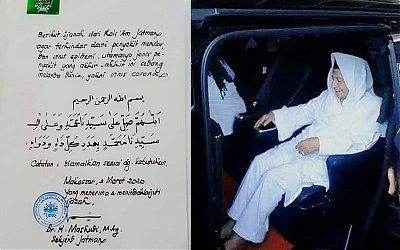 Berikut Ijazah dari Rois 'Am Jatmano
agar terhindar dari penyakit menular
dan virus epidemi, utamanya jenis pe-
nyakit yang akhir-akhir ini sedang
melanda Dunia, yakni virus corona.
بسم الله الرحمن الرحيم
اللهم صل على سيدنا محمد وعلى آل
سيدنا محمد بعدد كل داء ودواء.
Catatan: Hamalkan sesuai dg. kebutuhan.
Makassar, Maret 2020
Yang menerima & menindaklanjuti
Ijazah
Dr. H. Mashudi, M.Ag.
Sekjend Jatmano